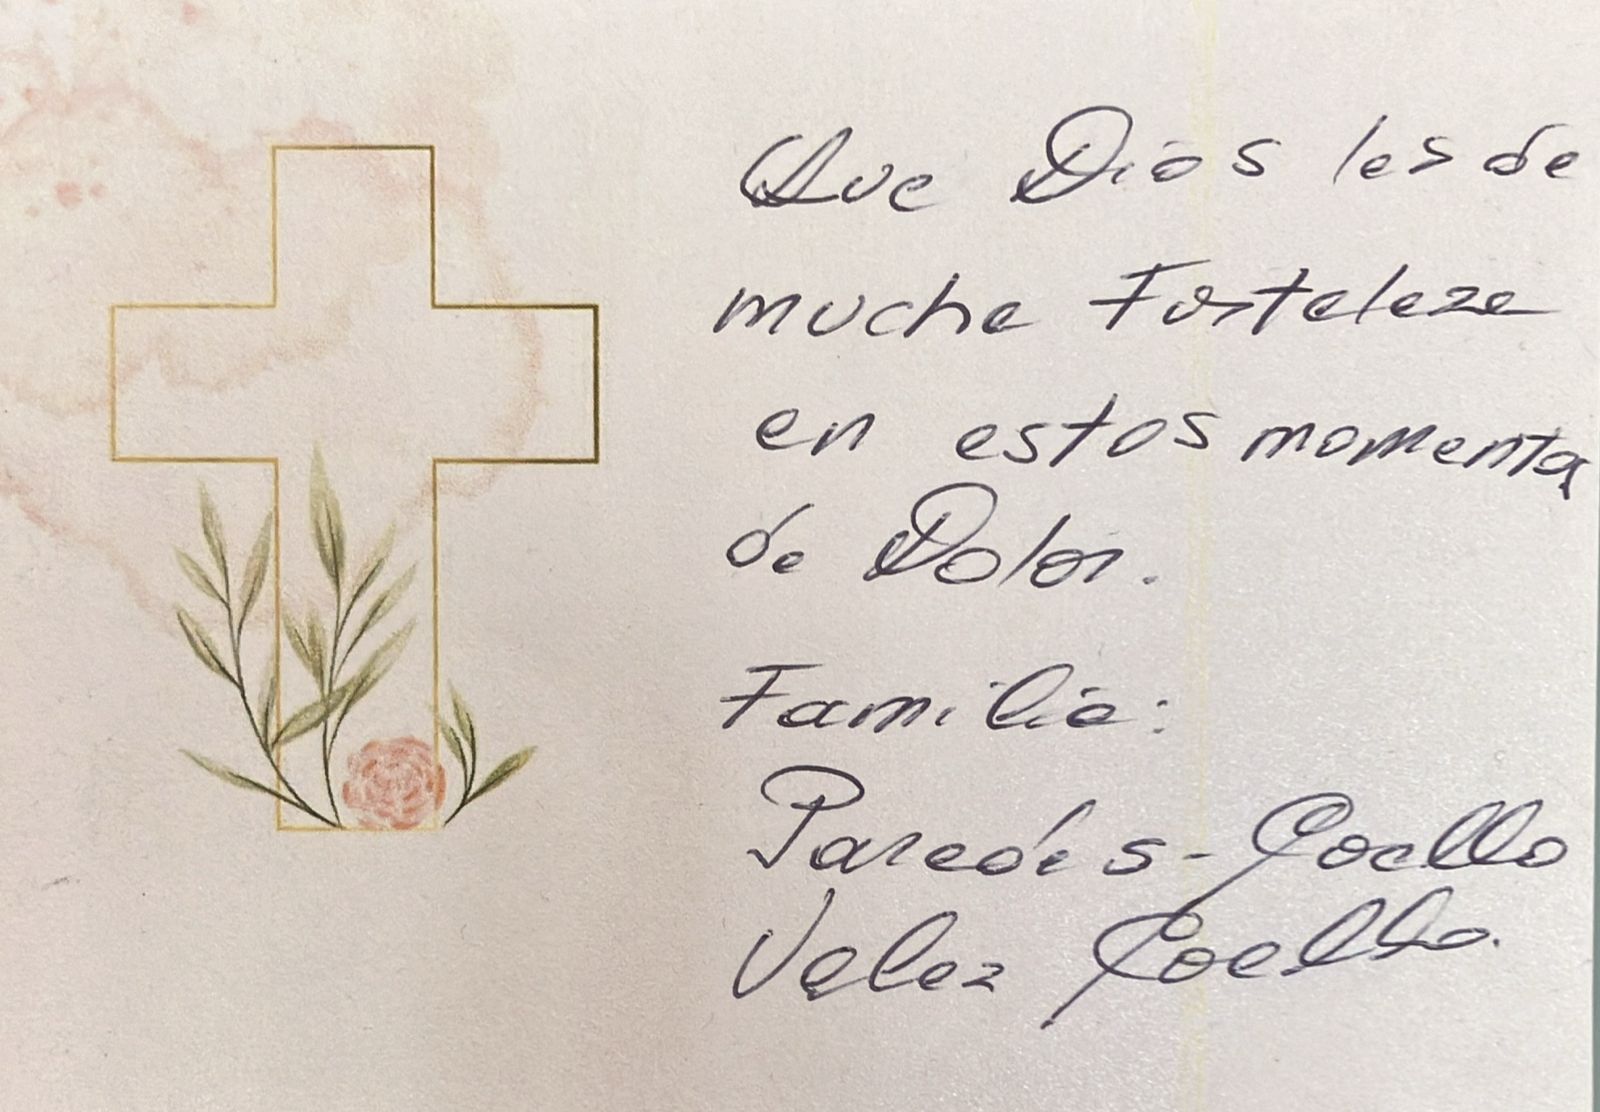 Que Dios les de
mucha Fortaleza
en estos momentos
de Dolor.
Familia:
Paredes-Coello
Velez Coello.